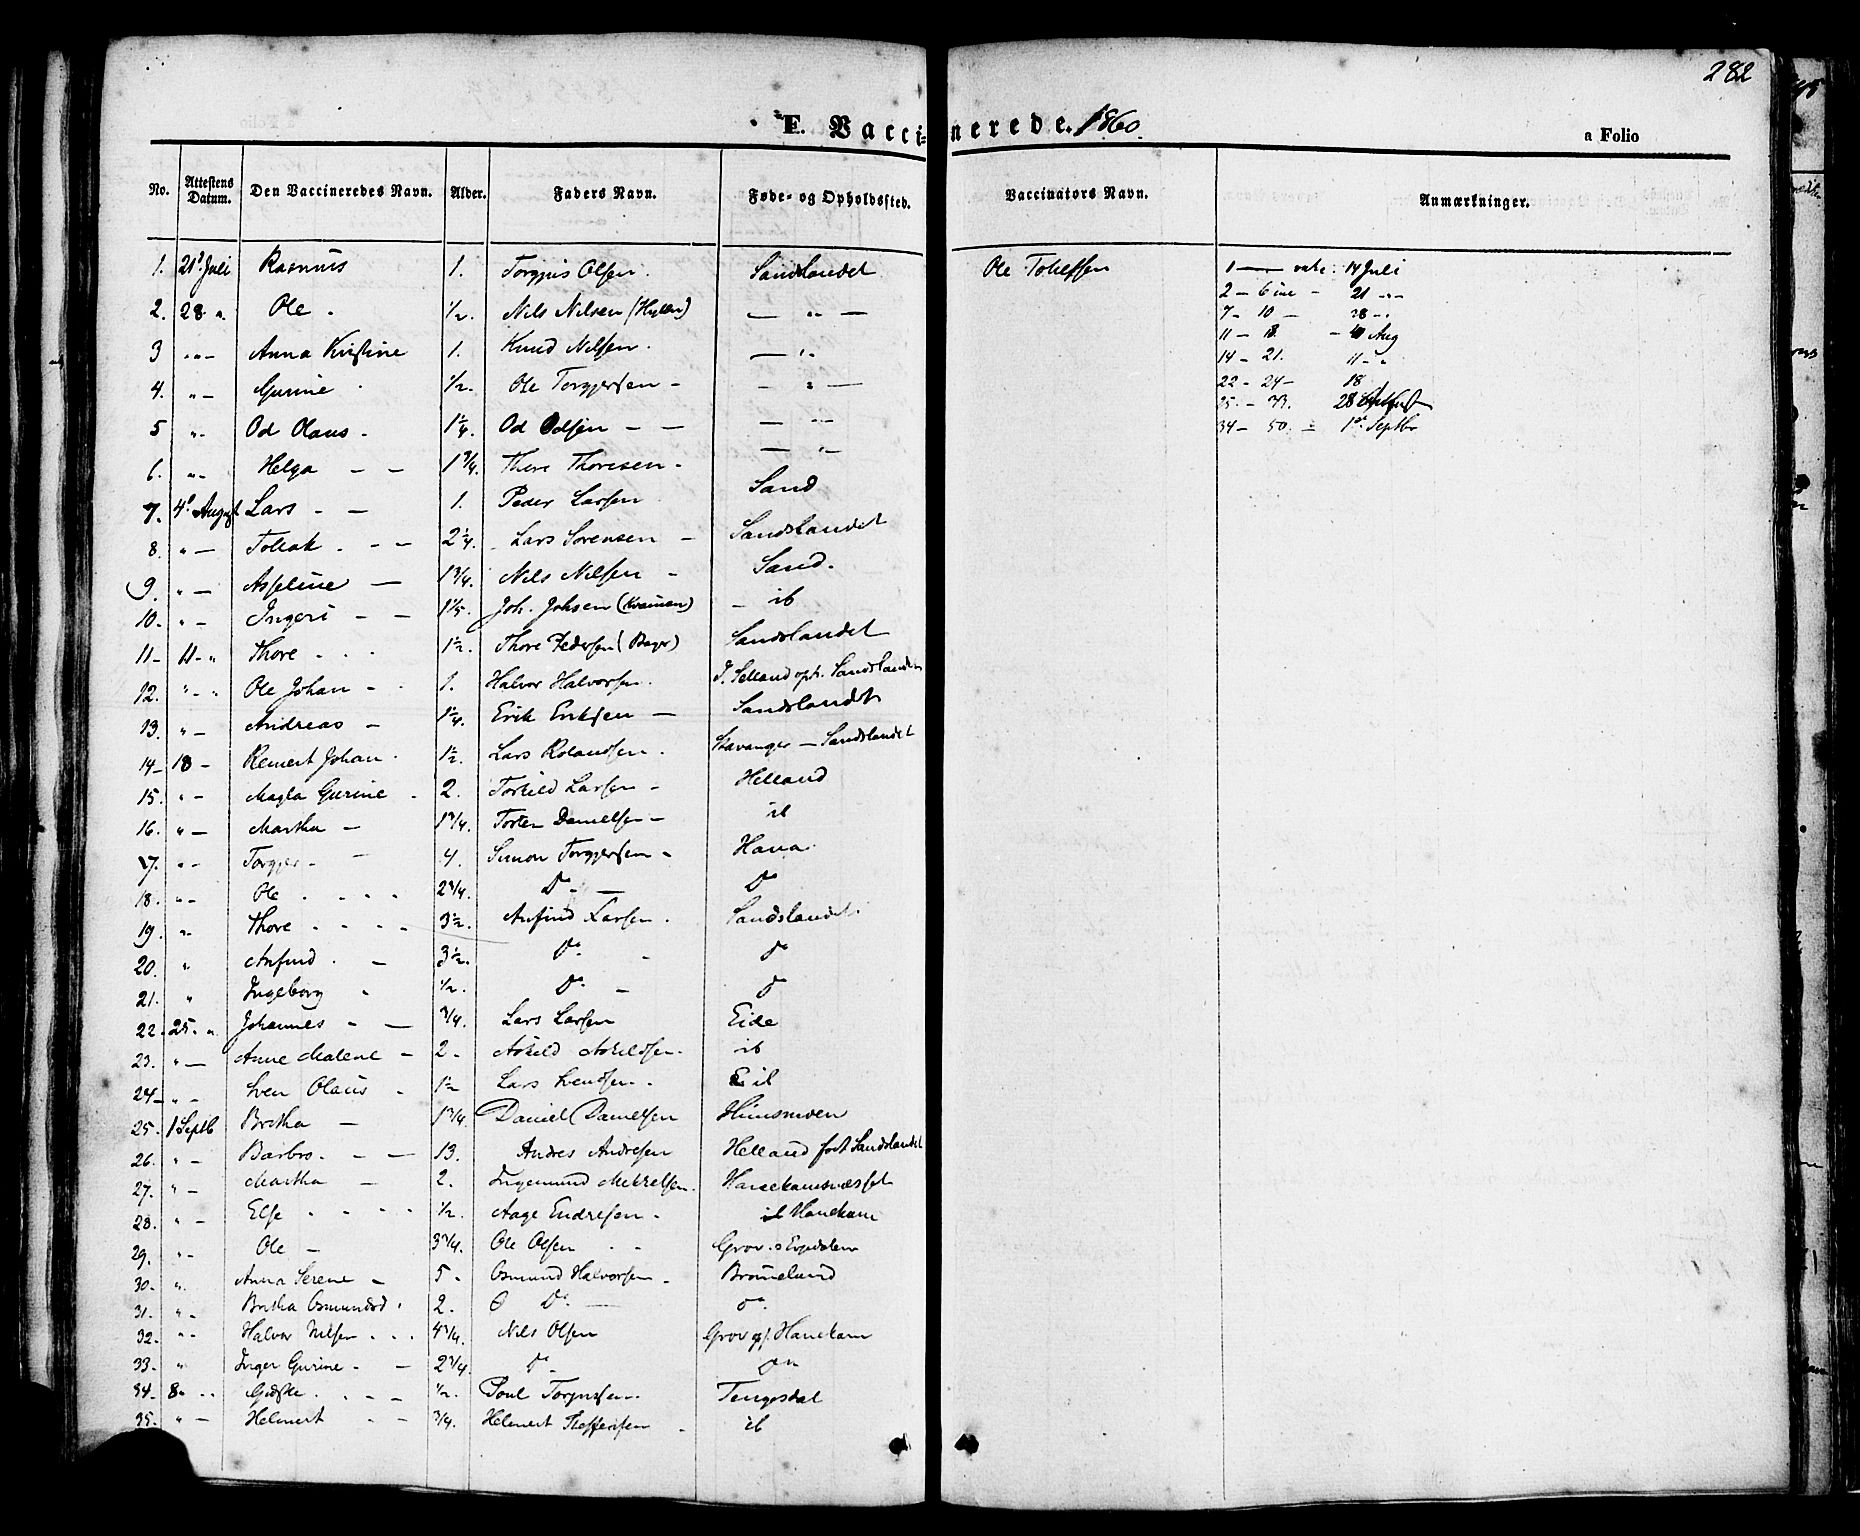 282
F. Vaccinerede. 1860.
a Folio
No. Attestens Datum. Den Vaccineredes Navn. Alder. Faders Navn. Føde- og Opholdssted. Vaccinators Navn. Anmærkninger.
1. 21d Juli Rasmus 1. Torgjus Olsen. Sandslandet Ole 1 — 14 Juli
2. 28 " Ole. 1/2. Nils Nilsen (Hyllen) — " — 2 – 6 21 "
3 " – Anna Kristine 1. Knud Nilsen. — " 7 – 10 – 28 – "
4. " – Gurine 1/2. Ole Torgjersen – – " — 11 – 13. – 4 Aug
5 " – Od Olaus – 1 1/4. Od Odsen – – — " 14 – 21. 11 – "
6. " – Helga – – 1 3/4. Thore Thoresen – — " 22 – 24 – 18
7. 4d August Lars – – 1. Peder Larsen Sand 25 – 33. 28
8. " – Tollak – – 2 1/4. Lars Sørensen – Sandslandet 34 – 50. – 1d Septbr
9. " – Asseline — 1 3/4. Nils Nilsen – Sand.
10. " – Ingeri – – 1 1/5. Joh. Johsen – ib
11 – 11 – " Thore . . . 1 1/2. Thore Pedersen Sandslandet
12. " – " Ole Johan – 1. Halvor Halvorsen. Selland Sandslandet
13. " – Andreas – 1 1/4. Erik Eriksen — Sandslandet
14 – 18 – Reinert Johan. 1 1/2. Lars Rolandsen. Stavanger – Sandslandet
15. " – Magla Gurine – 2. Torkild Larsen – Helland
16. " – Martha – 1 3/4. Danielsen – ib
17. " – Torgjer – – 4. Simon Torgjersen – Hana
18. " – Ole . . . . 2 3/4. Do – — Do
19. " Thore . . . . 3 1/2. Anfind Larsen. Sandslandet.
20. " Anfind. – 3 1/2. Do – do
21. " Ingeborg – 1/2. Do – do
22. 25. " Johannes – — 3/4. Lars Larsen Eide
23. " – Anne Malene – 2. Askild Askildsen. ib
24 – " – Sven Olaus – 1 1/2 Lars Svendsen. ib
25. 1 Septb Britha – 1 3/4. Daniel Danielsen
26. " – Barbro. – — 13. Andres Andresen Helland Sandslandet
27. " – Martha – 2. Ingemund
28. " – Else . . . . 1/2. Aage Endresen – ib Hanekam
29. " – Ole – 3 3/4. Ole Olsen . . Grov
30. " Anna Serene – 5 – Osmund Halvorsen – Brommeland
31. " – Britha Osmundsd. 2. Do — do.
32. " – Halvor Nilsen . . . 4 3/4. Nils Olsen Grov Hanekam
33. " Inger Gurine – – 2 3/4. Do – do
34 – 8 – " . . . – – 1/2. Poul Tengesdal
35. " – Helmert – – 3/4. Helmert ib